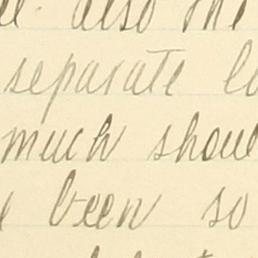 also the
separate
much shoul
been so